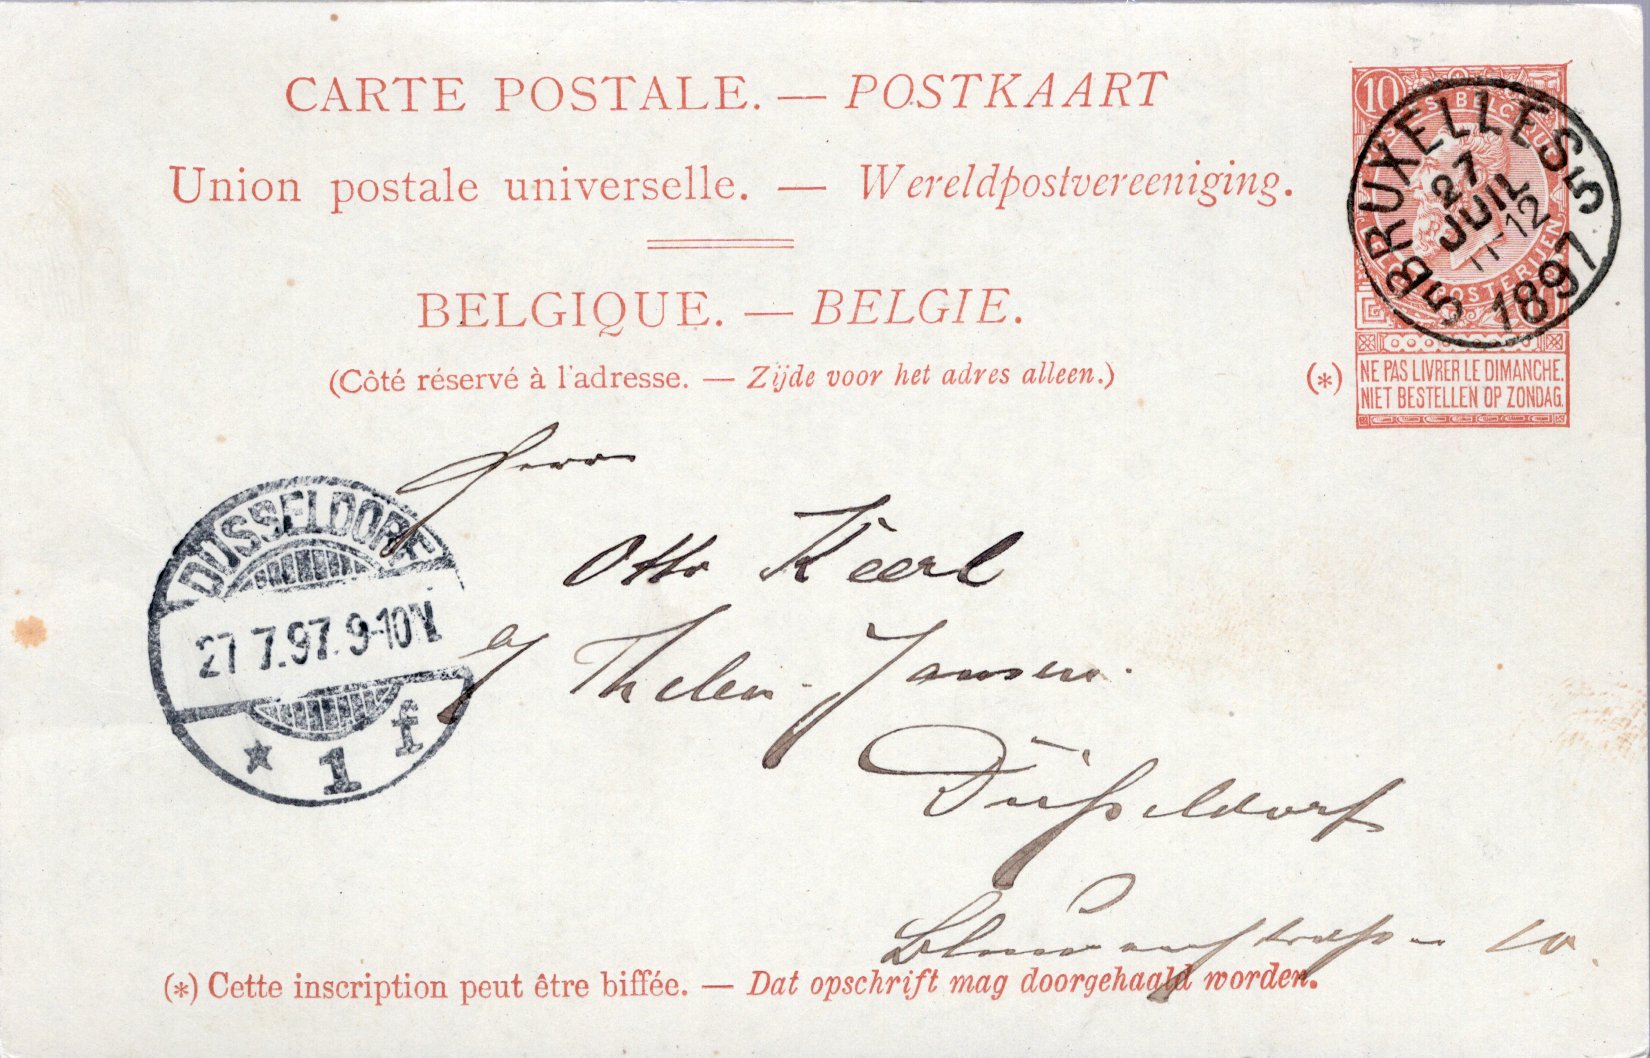 CARTE POSTALE. — POSTKAART
Union postale universelle. — Wereldpostvereeniging.
BELGIQUE. — BELGIE.
(Côté réservé à l'adresse. — Zijde voor het adres alleen.)
10
POSTES BELGIQUE
POSTERIJEN
BRUXELLES 5
27
JUIL
11-12
1897
5
(*)
NE PAS LIVRER LE DIMANCHE.
NIET BESTELLEN OP ZONDAG.
Herrn
Otto Keerl
DUSSELDORF
27 7.97. 9-10V
* 1 f
Thelen-Jansen.
Düsseldorf
10
(*) Cette inscription peut être biffée. — Dat opschrift mag doorgehaald worden.